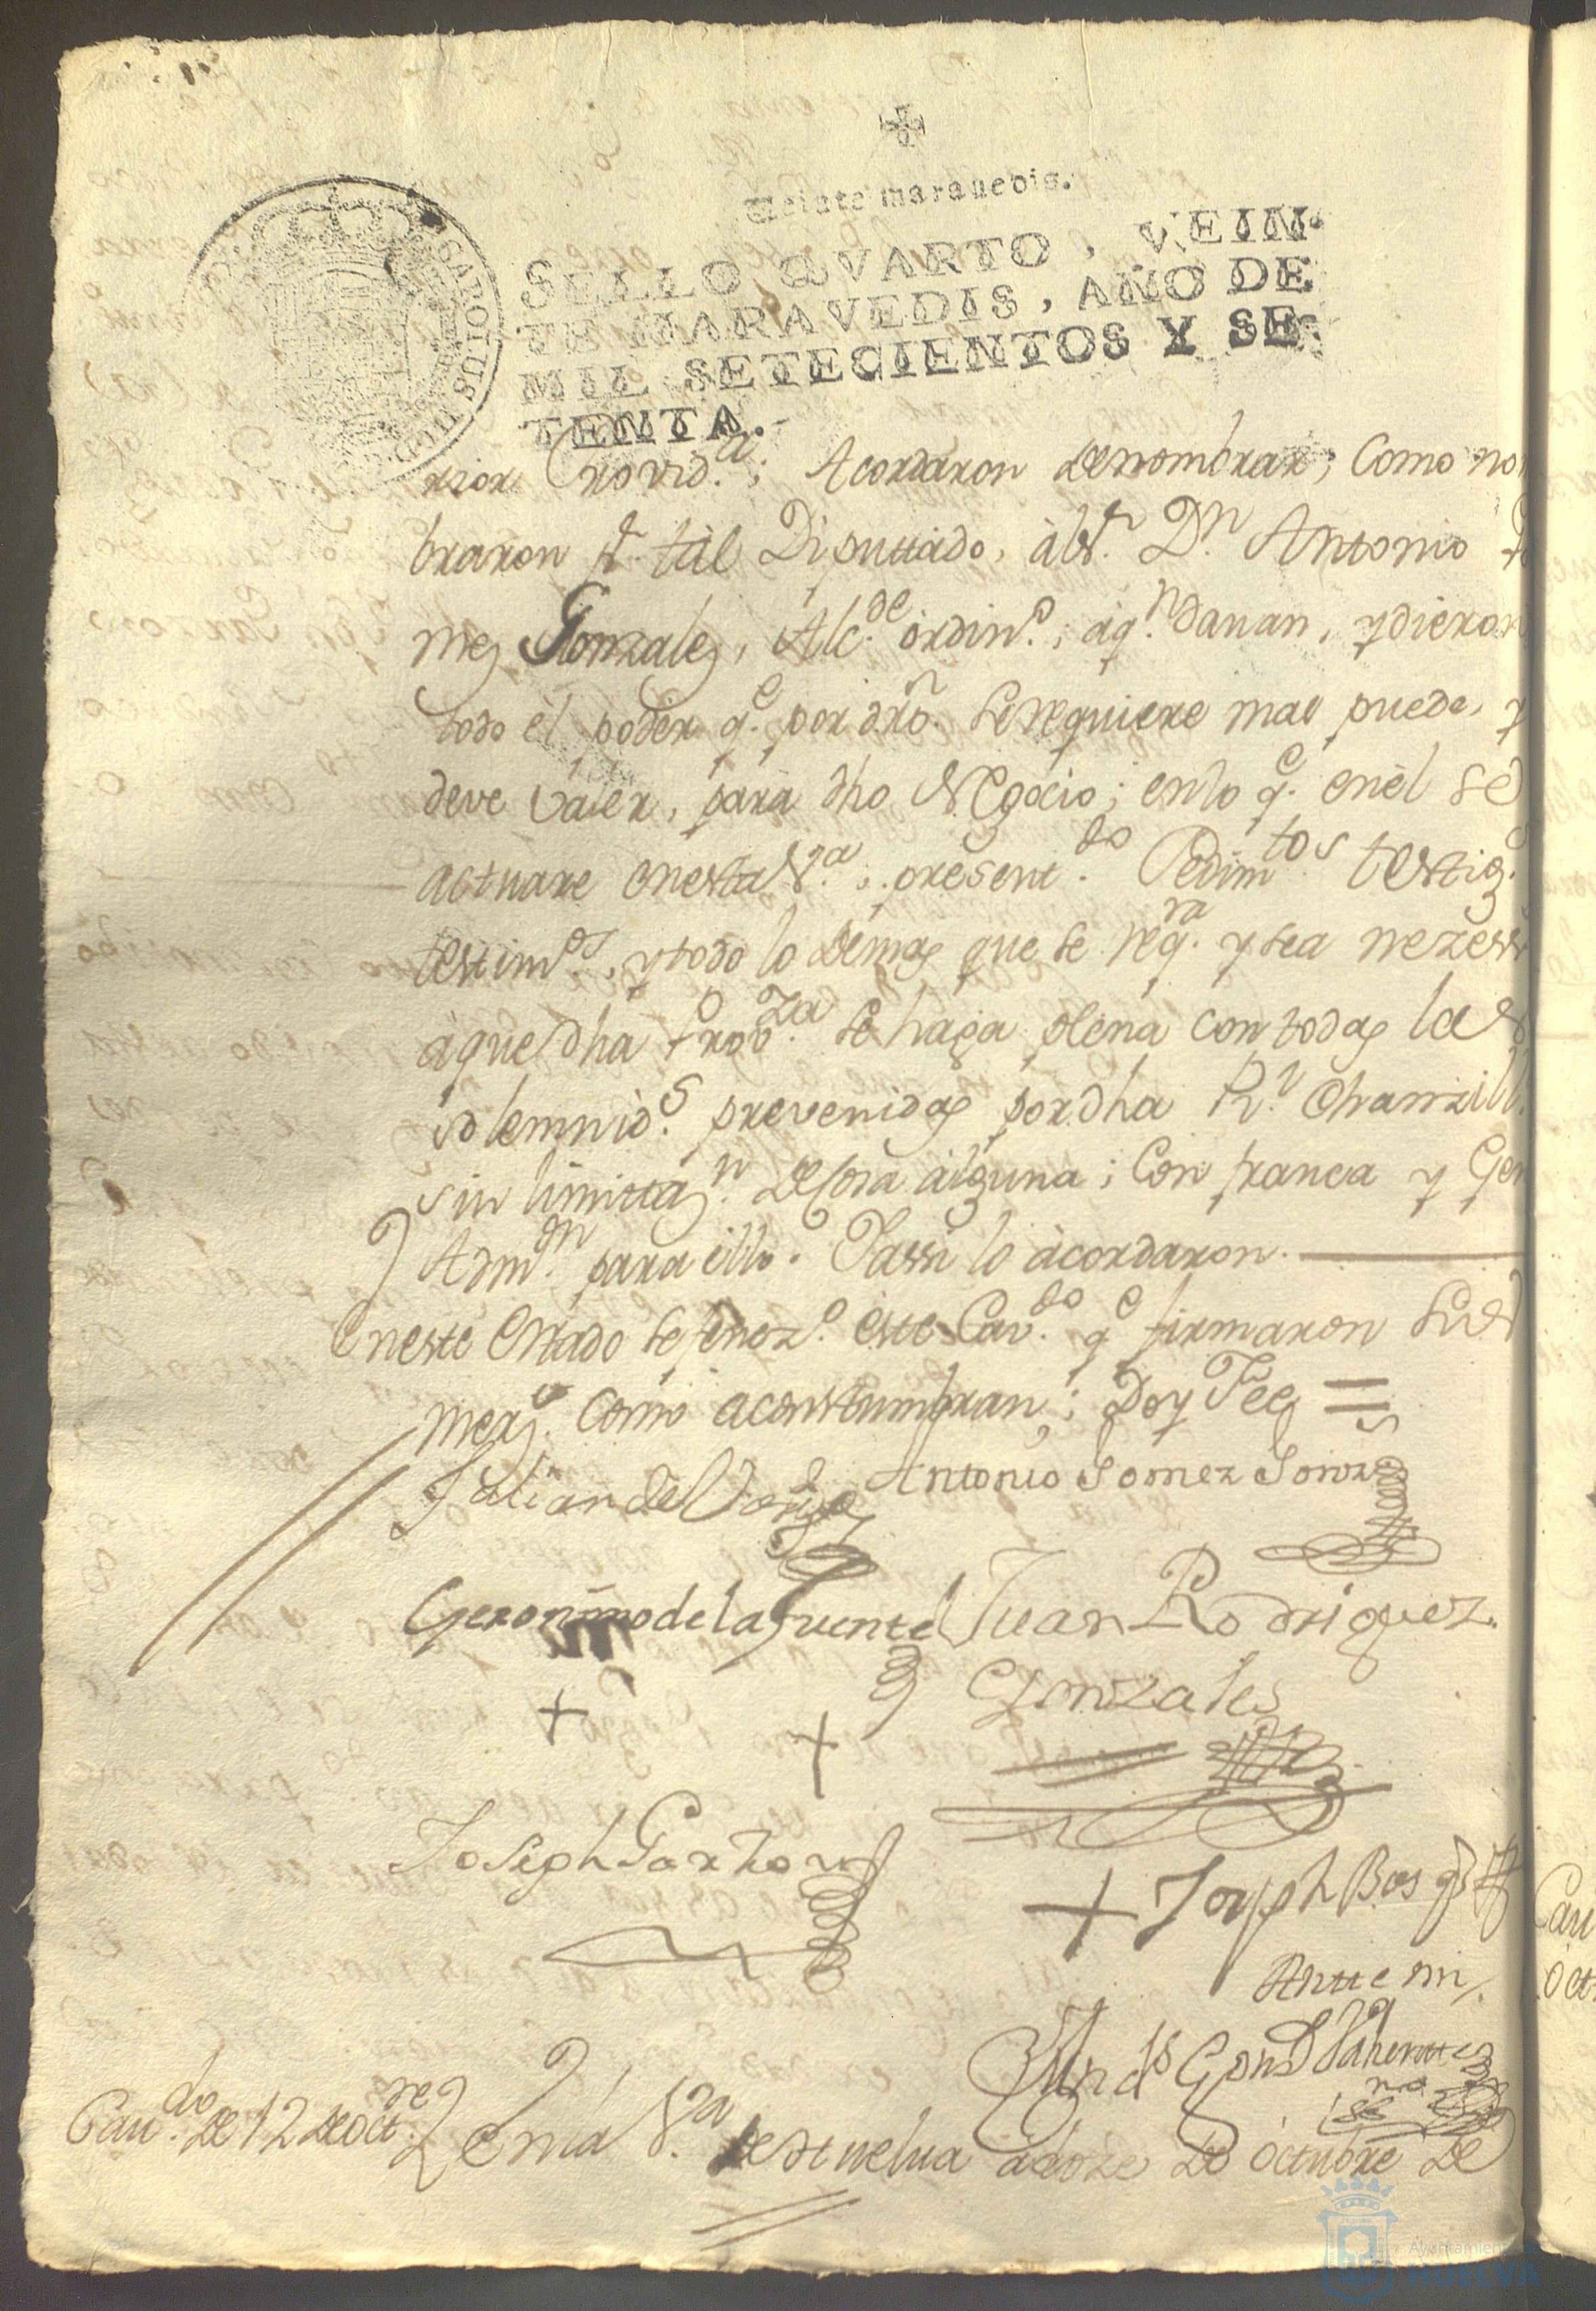 Veinte marauedis.
SELLO QVARTO, VEIN-
TE MARAVEDIS, AÑO DE
MIL SETECIENTOS Y SE-
TENTA.
CAROLUS III D.G.
rior Provid.ª; Acordaron de nombrar, Como nom
braron pr. tàl Diputtàdo, àl Sr. Dn. Antonio
mez Gonzalez, Alc.de òrdin.o; àq.n davan, y dieron
todo èl poder q.e por dro. se requiere mas puede, y
deve valer, para dho Negocio; en lo q.e en èl se
actuare en esta V.a, present.do Pedim.tos testig.s
testim.os, y todo lo demas que se req.ra y sea nezess
à que dha Prov.za se haga plena con todas las
solemnid.s prevenidas por dha R.l Chanzill.
sin limittaz.n de cosa àlguna; Con franca y Gen
Adm.on para ello. Y assi lo àcordaron.
En este Estado se fenez.o este Cav.do q.e firmaron sus
merz.s Como acostumbran; Doy Fee =
Antonio Gomez Gonzs
Geronimo de la Fuente Juan Rodriguez
Gonzales
+ +
Joseph Garzon
+ Joseph Bos
Antte mi,
Cav.do de 12 de oct.re En la V.a de Huelva à doze de òctubre de
Cav
oct
Ayuntamiento de
HUELVA